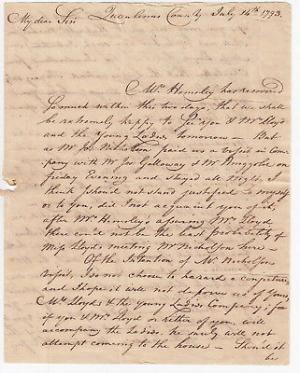 My dear Sir Queen Anns County July 14th 1793.
Mrs. Hemsley has recovered
so much within this two days, that we shall
be extremely happy to see you & Mrs Lloyd
and the Young Ladies tomorrow — But
as Mr Jos Nicholson paid us a visit in Com
pany with Mr Jas Galloway & Mr Ringgold on
friday Evening and stayed all Night, I
think I should not stand justified to myself
or to you, did I not acquaint you of it,
after Mrs Hemsley's assuring Mrs Lloyd,
there could not be the least probability of
Miss Lloyd's meeting Mr Nicholson here —
Of the Intention of Mr. Nicholsons
visit, I do not choose to hazard a conjecture,
and I hope it will not deprive us of Yours,
Mrs Lloyds & the young Ladies Company; for
if you & Mrs Lloyd or either of you will
accompany the Ladies, he surely will not
attempt coming to the house — Should it
be